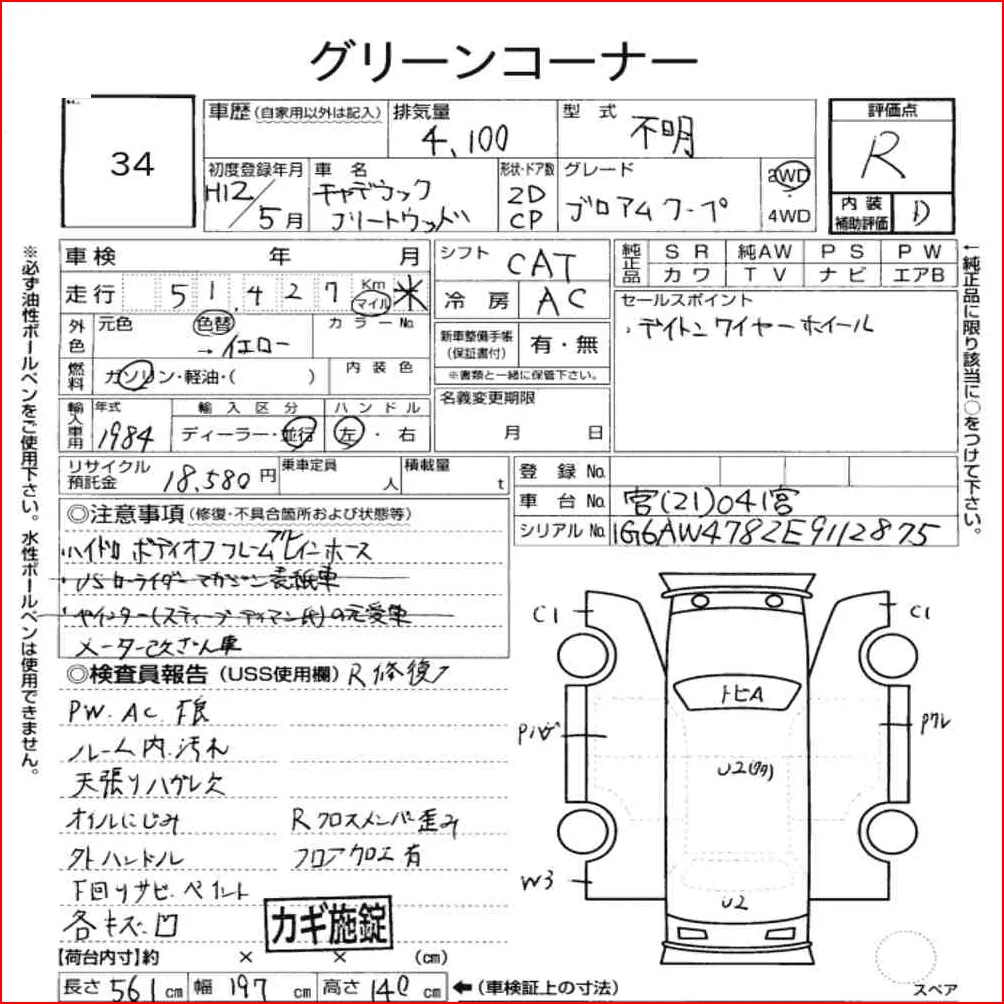 グリーンコーナー
34
車歴(自家用以外は記入)
排気量
4,100
型式
不明
評価点
R
初度登録年月
H12/5月
車名
キャデラック
フリートウッド
形状・ドア数
2D
CP
グレード
ブロアムクープ
2WD
4WD
内装
補助評価
D
車検 年 月
走行 51,427 Km マイル 米
シフト CAT
冷房 AC
純正品
SR 純AW PS PW
カワ TV ナビ エアB
外色
元色 色替 カラーNo.
→イエロー
燃料
ガソリン・軽油・( )
内装色
新車整備手帳
(保証書付)
有・無
※書類と一緒に保管下さい。
セールスポイント
・デイトンワイヤーホイール
輸入車用
年式
1984
輸入区分
ディーラー・並行
ハンドル
左・右
名義変更期限
月 日
リサイクル
預託金 18,580円
乗車定員
人
積載量
t
登録No.
車台No. 宮(21)041宮
シリアルNo. 1G6AW4782E9112875
◎注意事項(修復・不具合箇所および状態等)
ハイドロ ボディオフフレーム ブレインホース
・USローライダーマガジン表紙車
メーター改ざん車
◎検査員報告(USS使用欄) R修復ア
PW.AC.不良
ルーム内汚れ
天張りハガレ欠
オイルにじみ
Rクロスメンバー歪み
外ハンドル
フロアクロエ有
下回りサビ.ペイント
各キズ.凹
カギ施錠
C1
C1
トビA
U2
W3
U2
スペア
【荷台内寸】約 × × (cm)
長さ 561 cm 幅 197 cm 高さ 140 cm ←(車検証上の寸法)
※必ず油性ボールペンをご使用下さい。水性ボールペンは使用できません。
←純正品に限り該当に○をつけて下さい。